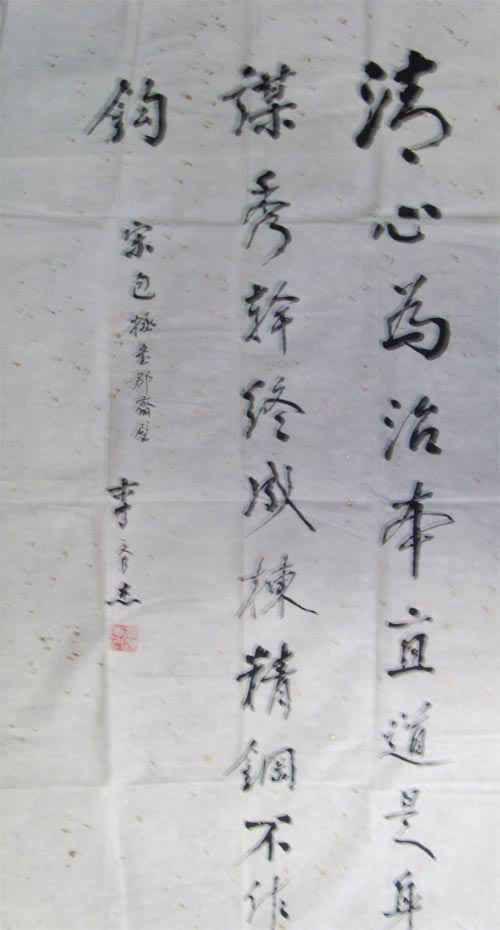 清心為治本直道是身
謀秀幹終成棟精鋼不作
鈎
宋包拯書郡齋壁
李